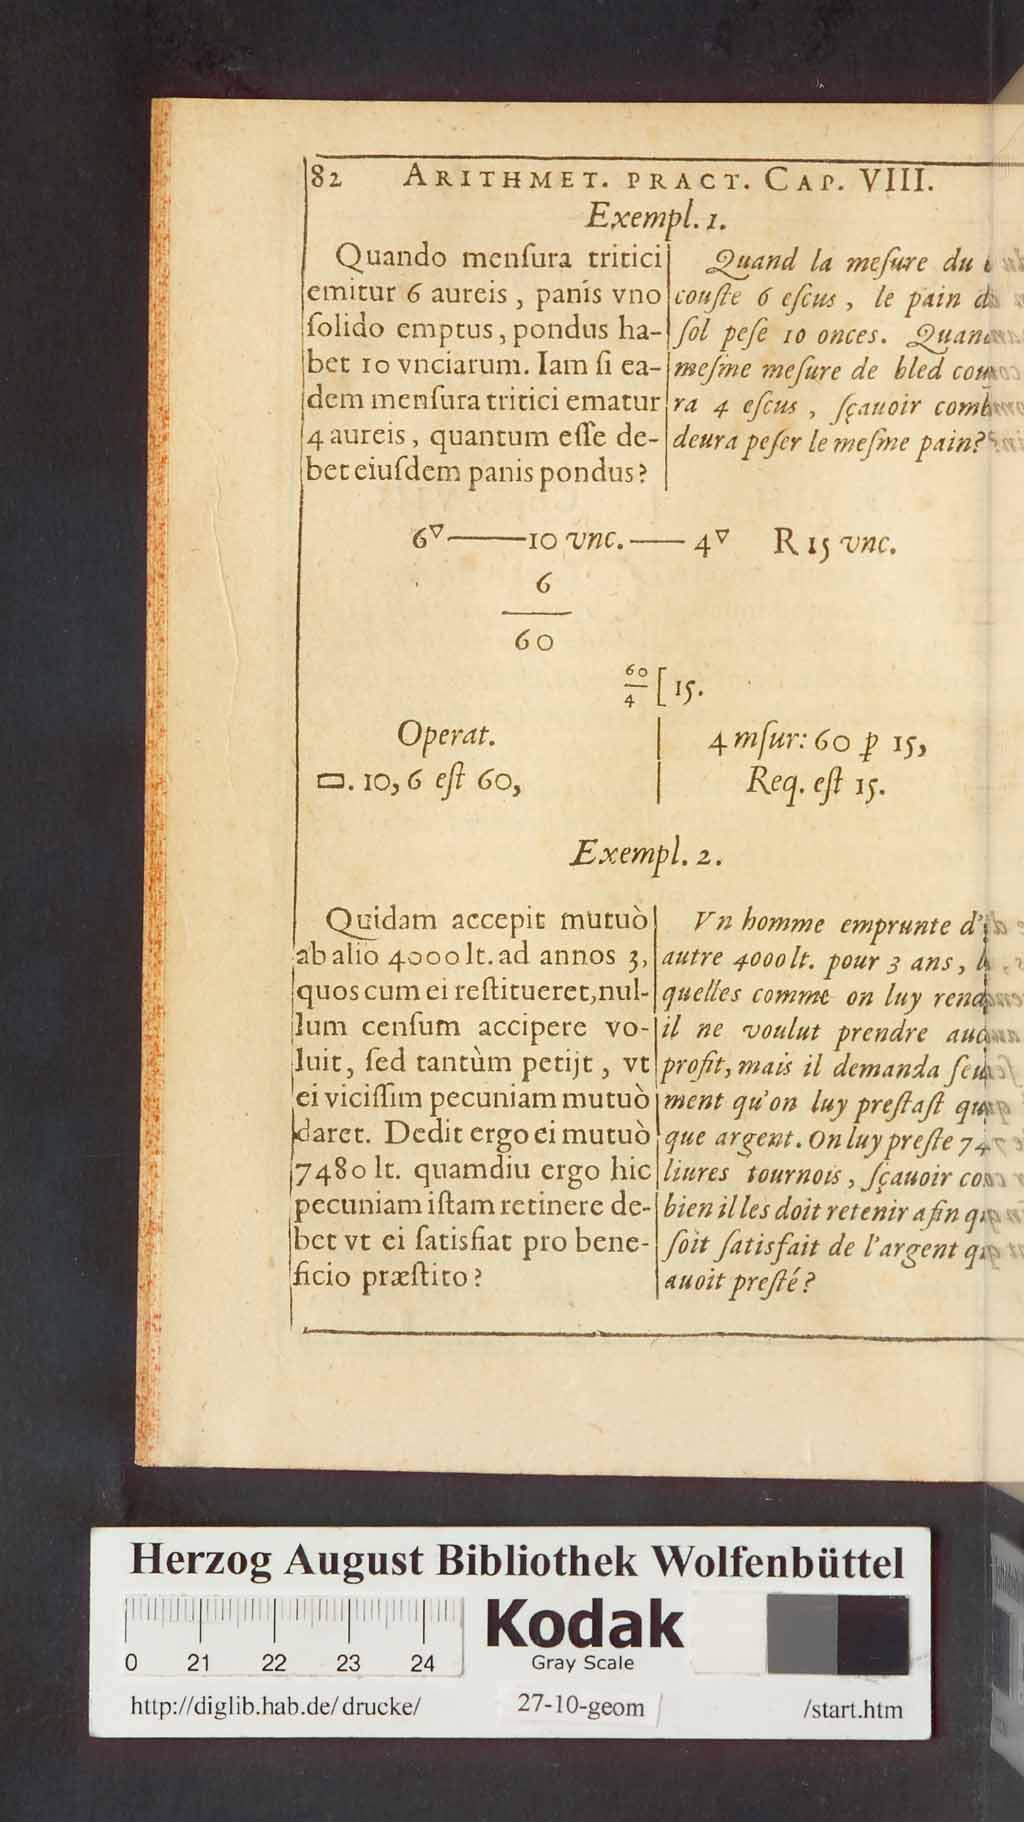 82 ARITHMET. PRACT. CAP. VIII.
Exempl. 1.
Quando menſura tritici
emitur 6 aureis, panis vno
ſolido emptus, pondus ha-
bet 10 vnciarum. Iam ſi ea-
dem menſura tritici ematur
4 aureis, quantum eſſe de-
bet eiuſdem panis pondus?
Quand la meſure du
couſte 6 eſcus, le pain
ſol peſe 10 onces.
meſme meſure de bled
ra 4 eſcus, ſçauoir
deura peſer le meſme pain?
6▽ —— 10 vnc. —— 4▽ R 15 vnc.
6
60
60/4 [15.
Operat.
▭. 10, 6 eſt 60,
4 mſur: 60 ꝑ 15,
Req. eſt 15.
Exempl. 2.
Quidam accepit mutuò
ab alio 4000 lt. ad annos 3,
quos cum ei reſtitueret, nul-
lum cenſum accipere vo-
luit, ſed tantùm petijt, vt
ei viciſſim pecuniam mutuò
daret. Dedit ergo ei mutuò
7480 lt. quamdiu ergo hic
pecuniam iſtam retinere de-
bet vt ei ſatisfiat pro bene-
ficio præſtito?
Vn homme emprunte
autre 4000 lt. pour 3 ans,
quelles comme on luy
il ne voulut prendre
profit, mais il demanda
ment qu'on luy preſtaſt
que argent. On luy preſte
liures tournois, ſçauoir
bien il les doit retenir afin
ſoit ſatisfait de l'argent
auoit preſté?
Herzog August Bibliothek Wolfenbüttel
0 21 22 23 24
Kodak
Gray Scale
http://diglib.hab.de/drucke/ 27-10-geom /start.htm